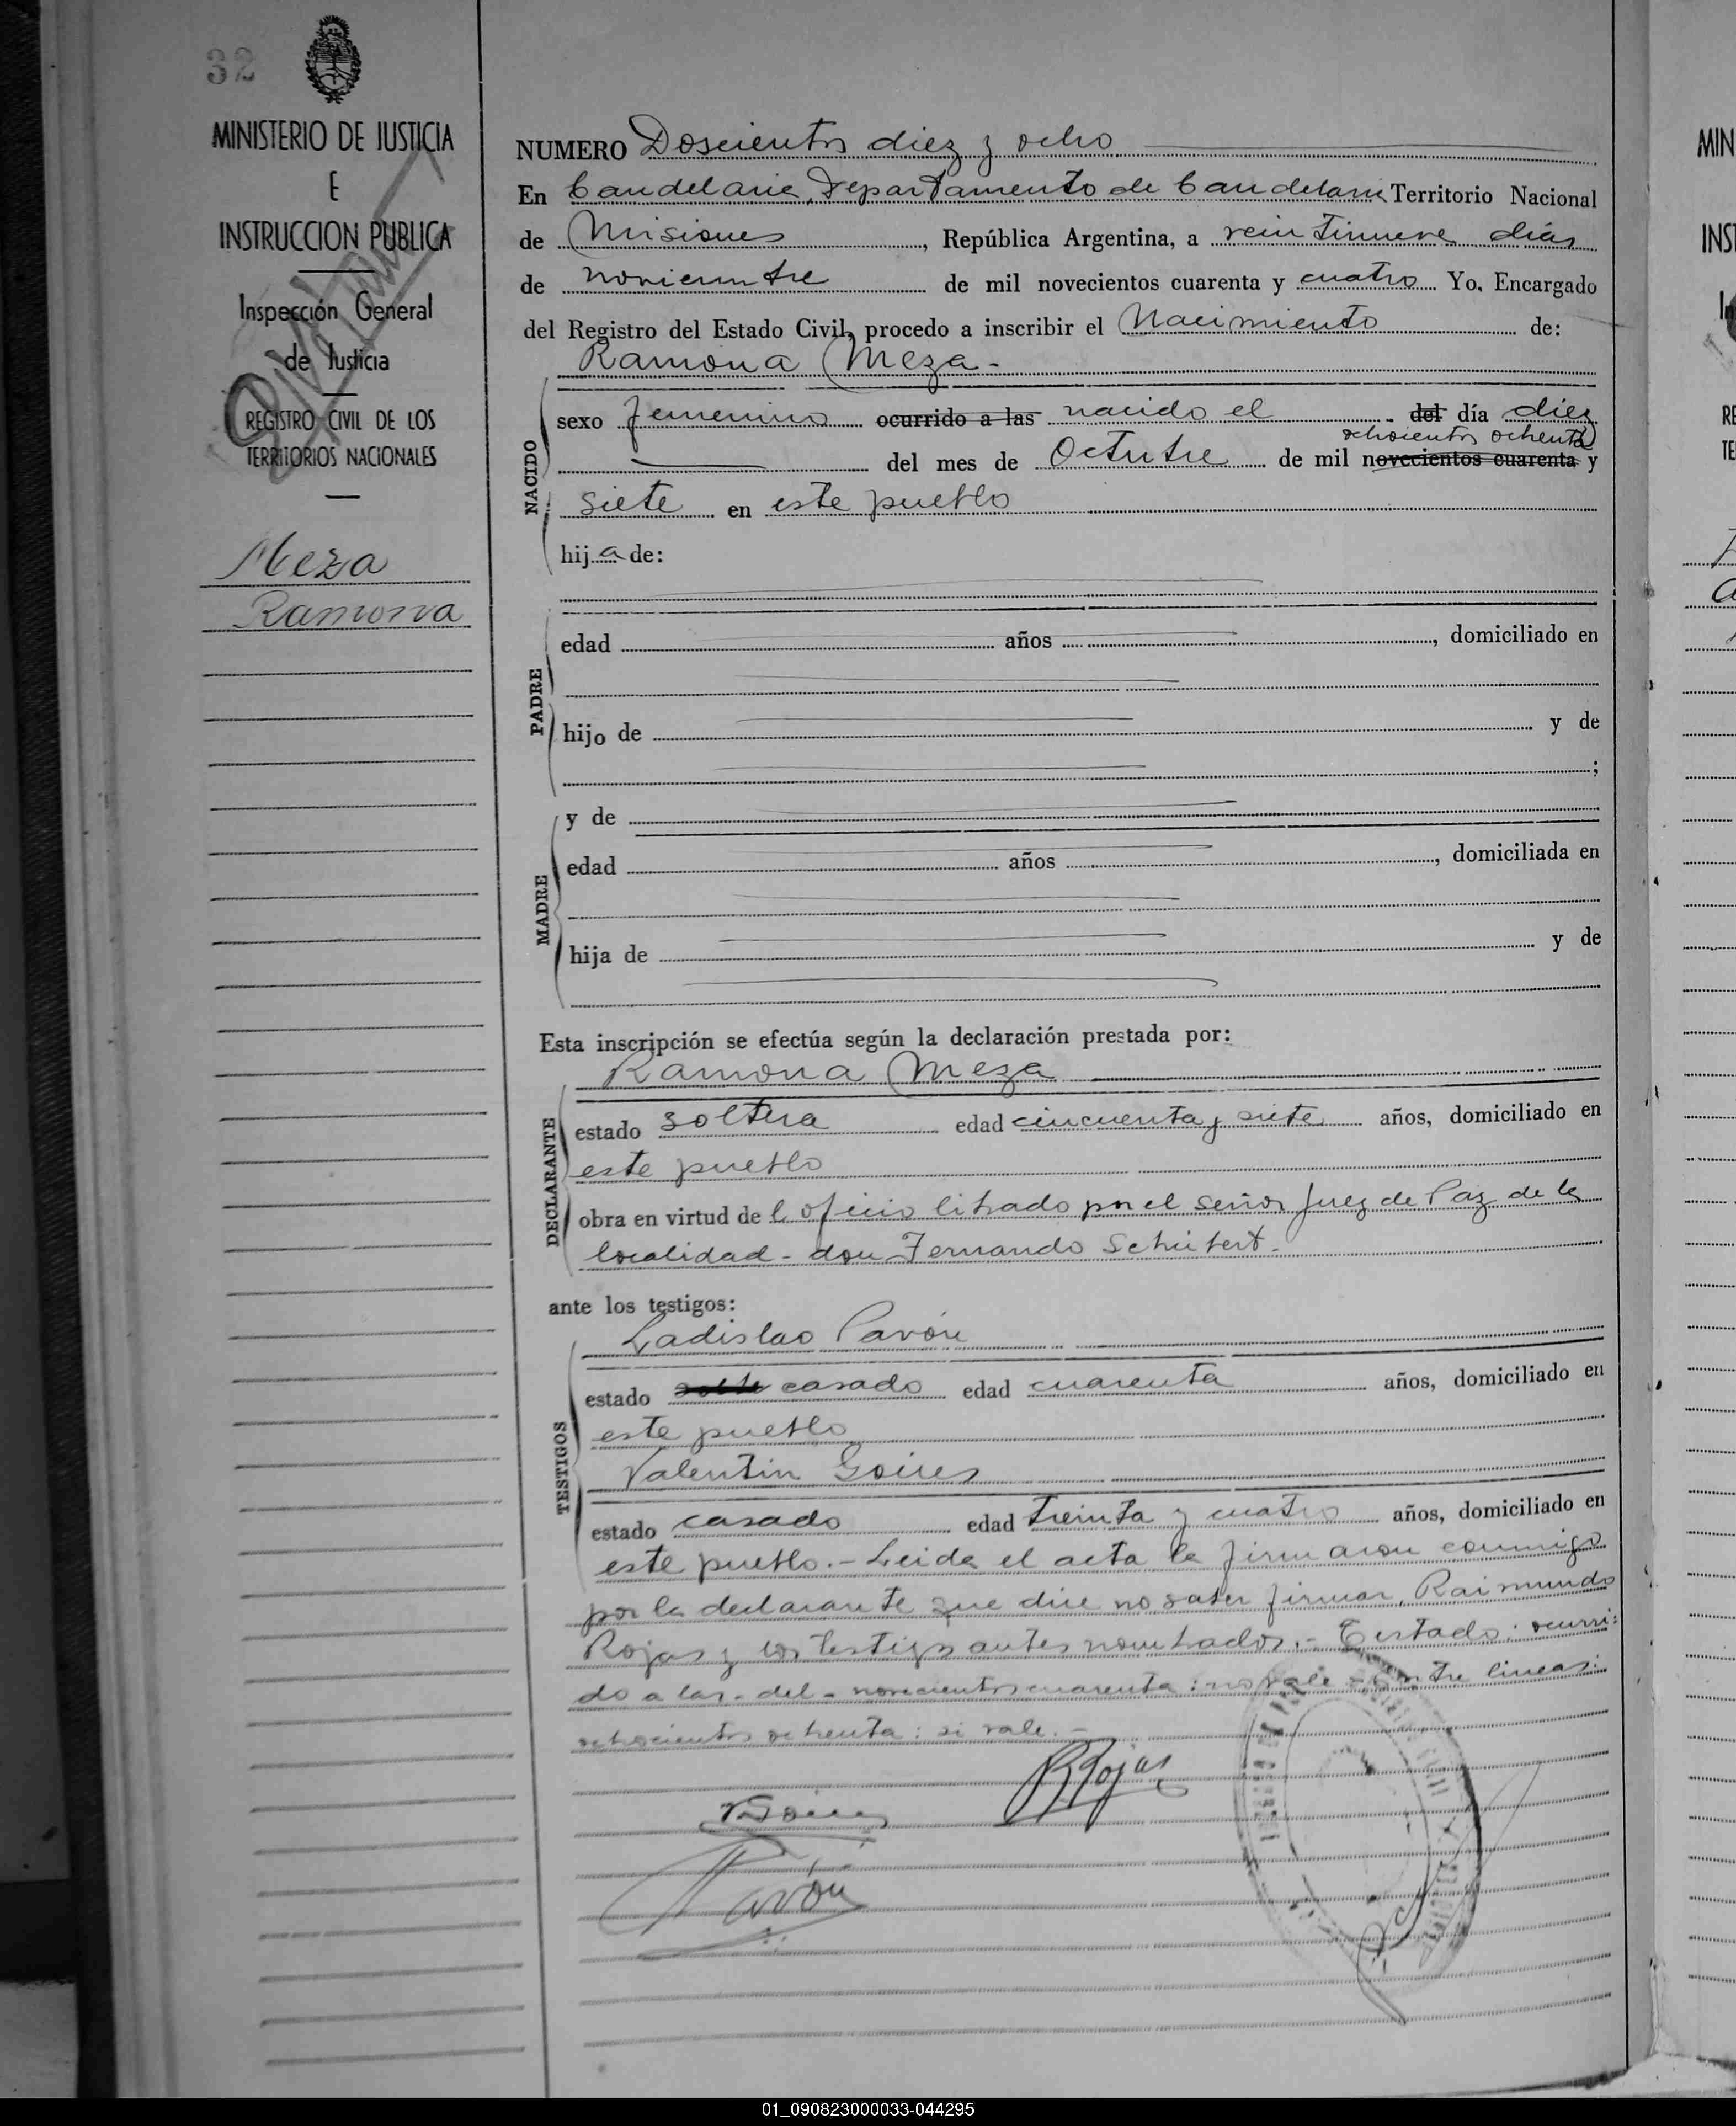 32
MINISTERIO DE JUSTICIA
E
INSTRUCCION PUBLICA
Inspección General
de Justicia
REGISTRO CIVIL DE LOS
TERRITORIOS NACIONALES
Meza
Ramona
NUMERO Doscientos diez y ocho
En Candelaria, Departamento de Candelaria Territorio Nacional
de Misiones, República Argentina, a veintinueve días
de noviembre de mil novecientos cuarenta y cuatro Yo, Encargado
del Registro del Estado Civil, procedo a inscribir el Nacimiento de:
Ramona Meza.-
NACIDO
sexo femenino ocurrido a las nacido el del día diez
ochocientos ochenta
del mes de Octubre de mil novecientos cuarenta y
siete en este pueblo
hija de:
PADRE
edad años, domiciliado en
hijo de y de
;
MADRE
y de
edad años, domiciliada en
hija de y de
Esta inscripción se efectúa según la declaración prestada por:
Ramona Meza
DECLARANTE
estado soltera edad cincuenta y siete años, domiciliado en
este pueblo
obra en virtud del oficio librado por el señor Juez de Paz de la
localidad - don Fernando Schubert.-
ante los testigos:
Ladislao Pavón
TESTIGOS
estado casado edad cuarenta años, domiciliado en
este pueblo
Valentin Goires
estado casado edad treinta y cuatro años, domiciliado en
este pueblo.- Leida el acta la firmaron conmigo
por la declarante que dice no saber firmar, Raimundo
Rojas y los testigos antes nombrados.- Testado: ocurri-
do a las - del - novecientos cuarenta: no vale - Entre lineas:
ochocientos ochenta: si vale.-
RRojas
VGoires
Pavón
MIN
INS
In
RE
TE
01_090823000033-044295